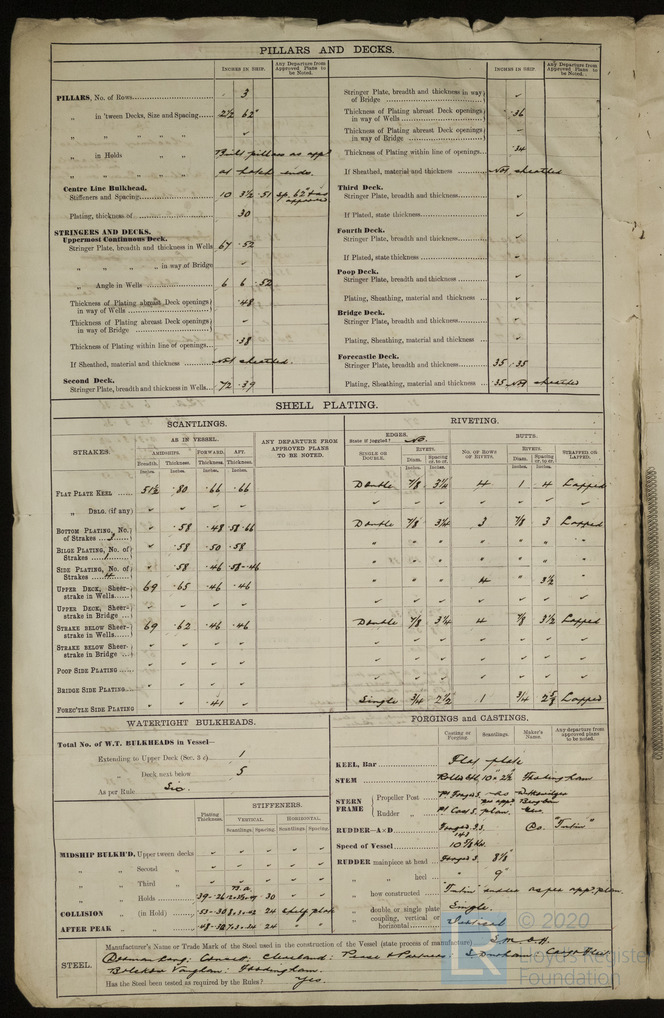 PILLARS AND DECKS.
INCHES IN SHIP. Any Departure from Approved Plans to be Noted. INCHES IN SHIP. Any Departure from Approved Plans to be Noted.
PILLARS, No. of Rows 3
„ in 'tween Decks, Size and Spacing 2½ 62"
„ „ „ „ ✓
„ in Holds Built pillars as app?
„ „ „ „ at hatch ends.
Centre Line Bulkhead.
Stiffeners and Spacing 10 3½ .51 sp. 62" & as approved
Plating, thickness of .30
STRINGERS AND DECKS.
Uppermost Continuous Deck.
Stringer Plate, breadth and thickness in Wells 67 .52
„ „ „ „ in way of Bridge ✓
„ Angle in Wells 6 6 .52
Thickness of Plating abreast Deck openings in way of Wells .48
Thickness of Plating abreast Deck openings in way of Bridge ✓
Thickness of Plating within line of openings .38
If Sheathed, material and thickness Not sheathed.
Second Deck.
Stringer Plate, breadth and thickness in Wells 72 .39
Stringer Plate, breadth and thickness in way of Bridge ✓
Thickness of Plating abreast Deck openings in way of Wells .36
Thickness of Plating abreast Deck openings in way of Bridge ✓
Thickness of Plating within line of openings .34
If Sheathed, material and thickness Not sheathed
Third Deck.
Stringer Plate, breadth and thickness ✓
If Plated, state thickness ✓
Fourth Deck.
Stringer Plate, breadth and thickness ✓
If Plated, state thickness ✓
Poop Deck.
Stringer Plate, breadth and thickness ✓
Plating, Sheathing, material and thickness ✓
Bridge Deck.
Stringer Plate, breadth and thickness ✓
Plating, Sheathing, material and thickness ✓
Forecastle Deck.
Stringer Plate, breadth and thickness 35 .35
Plating, Sheathing, material and thickness .35 Not sheathed
SHELL PLATING.
SCANTLINGS. RIVETING.
STRAKES. AS IN VESSEL. ANY DEPARTURE FROM APPROVED PLANS TO BE NOTED. EDGES. State if joggled? No. BUTTS.
AMIDSHIPS. FORWARD. AFT. SINGLE OR DOUBLE. RIVETS. No. OF ROWS OF RIVETS. RIVETS. STRAPPED OR LAPPED.
Breadth. Thickness. Thickness. Thickness. Diam. Spacing cr. to cr. Diam. Spacing cr. to cr.
Inches. Inches. Inches. Inches. Inches. Inches. Inches. Inches.
FLAT PLATE KEEL 51½ .80 .66 .66 Double 7/8 3¼ 4 1 4 Lapped
„ DBLG. (if any) ✓ ✓ ✓ ✓ ✓ ✓ ✓ ✓ ✓ ✓ ✓
BOTTOM PLATING, No. of Strakes 3 ✓ .58 .48 .58 .66 Double 7/8 3¼ 3 7/8 3 Lapped
BILGE PLATING, No. of Strakes 1 ✓ .58 .50 .58 „ „ „ „ „ „ „
SIDE PLATING, No. of Strakes 4 ✓ .58 .46 .58-.46 „ „ „ „ „ „ „
UPPER DECK, Sheerstrake in Wells 69 .65 .46 .46 „ „ „ 4 „ 3½ „
UPPER DECK, Sheerstrake in Bridge ✓ ✓ ✓ ✓ ✓ ✓ ✓ ✓ ✓ ✓ ✓
STRAKE BELOW Sheerstrake in Wells 69 .62 .46 .46 Double 7/8 3¼ 4 7/8 3½ Lapped
STRAKE BELOW Sheerstrake in Bridge ✓ ✓ ✓ ✓ ✓ ✓ ✓ ✓ ✓ ✓ ✓
POOP SIDE PLATING ✓ ✓ ✓ ✓ ✓ ✓ ✓ ✓ ✓ ✓ ✓
BRIDGE SIDE PLATING ✓ ✓ ✓ ✓ ✓ ✓ ✓ ✓ ✓ ✓ ✓
FOREC'TLE SIDE PLATING .41 ✓ Single 3/4 2½ 1 3/4 2⅝ Lapped
WATERTIGHT BULKHEADS.
Total No. of W.T. BULKHEADS in Vessel—
Extending to Upper Deck (Sec. 3 c) 1
„ Deck next below 5
As per Rule Six
Plating Thickness. STIFFENERS.
VERTICAL. HORIZONTAL.
Scantlings. Spacing. Scantlings. Spacing.
MIDSHIP BULKH'D. Upper tween decks ✓ ✓ ✓ ✓ ✓
„ Second „ ✓ ✓ ✓ ✓ ✓
„ Third „ ✓ ✓ ✓ ✓
„ Holds .39-.26 30 ✓ ✓
COLLISION „ (in Hold) .53-.30 24 shelf plate
AFTER PEAK „ „ 24 ✓ ✓
FORGINGS and CASTINGS.
Casting or Forging. Scantlings. Maker's Name. Any departure from approved plans to be noted.
KEEL, Bar Flat plate
STEM Rolled St. 10 × 2½ Frodingham
STERN FRAME Propeller Post
Rudder „ plan.
RUDDER—A×D Co. "Turbin"
Speed of Vessel 10⅞ Kts.
RUDDER mainpiece at head Forged S. 8⅞
„ „ heel „ 9"
„ how constructed rudder as per app? plan.
„ double or single plate Single.
„ coupling, vertical or horizontal Vertical
STEEL.
Manufacturer's Name or Trade Mark of the Steel used in the construction of the Vessel (state process of manufacture) S.M. O.H.
Dorman Long: Consett, Cleveland: Pease & Partners: S. Durham Cargo Fleet
Bolckow Vaughan: Frodingham.
Has the Steel been tested as required by the Rules? Yes.
© 2020
LR
Lloyd's Register
Foundation